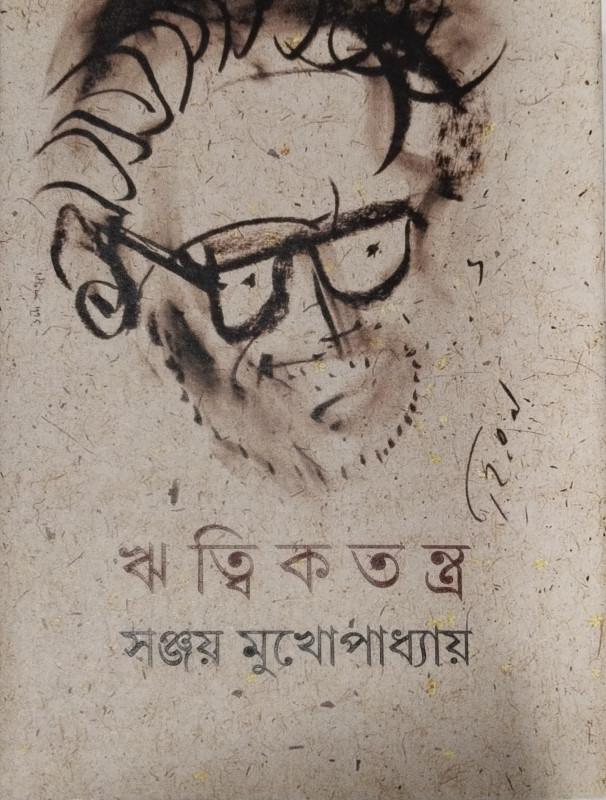 ঋত্বিকতন্ত্র
সঞ্জয় মুখোপাধ্যায়